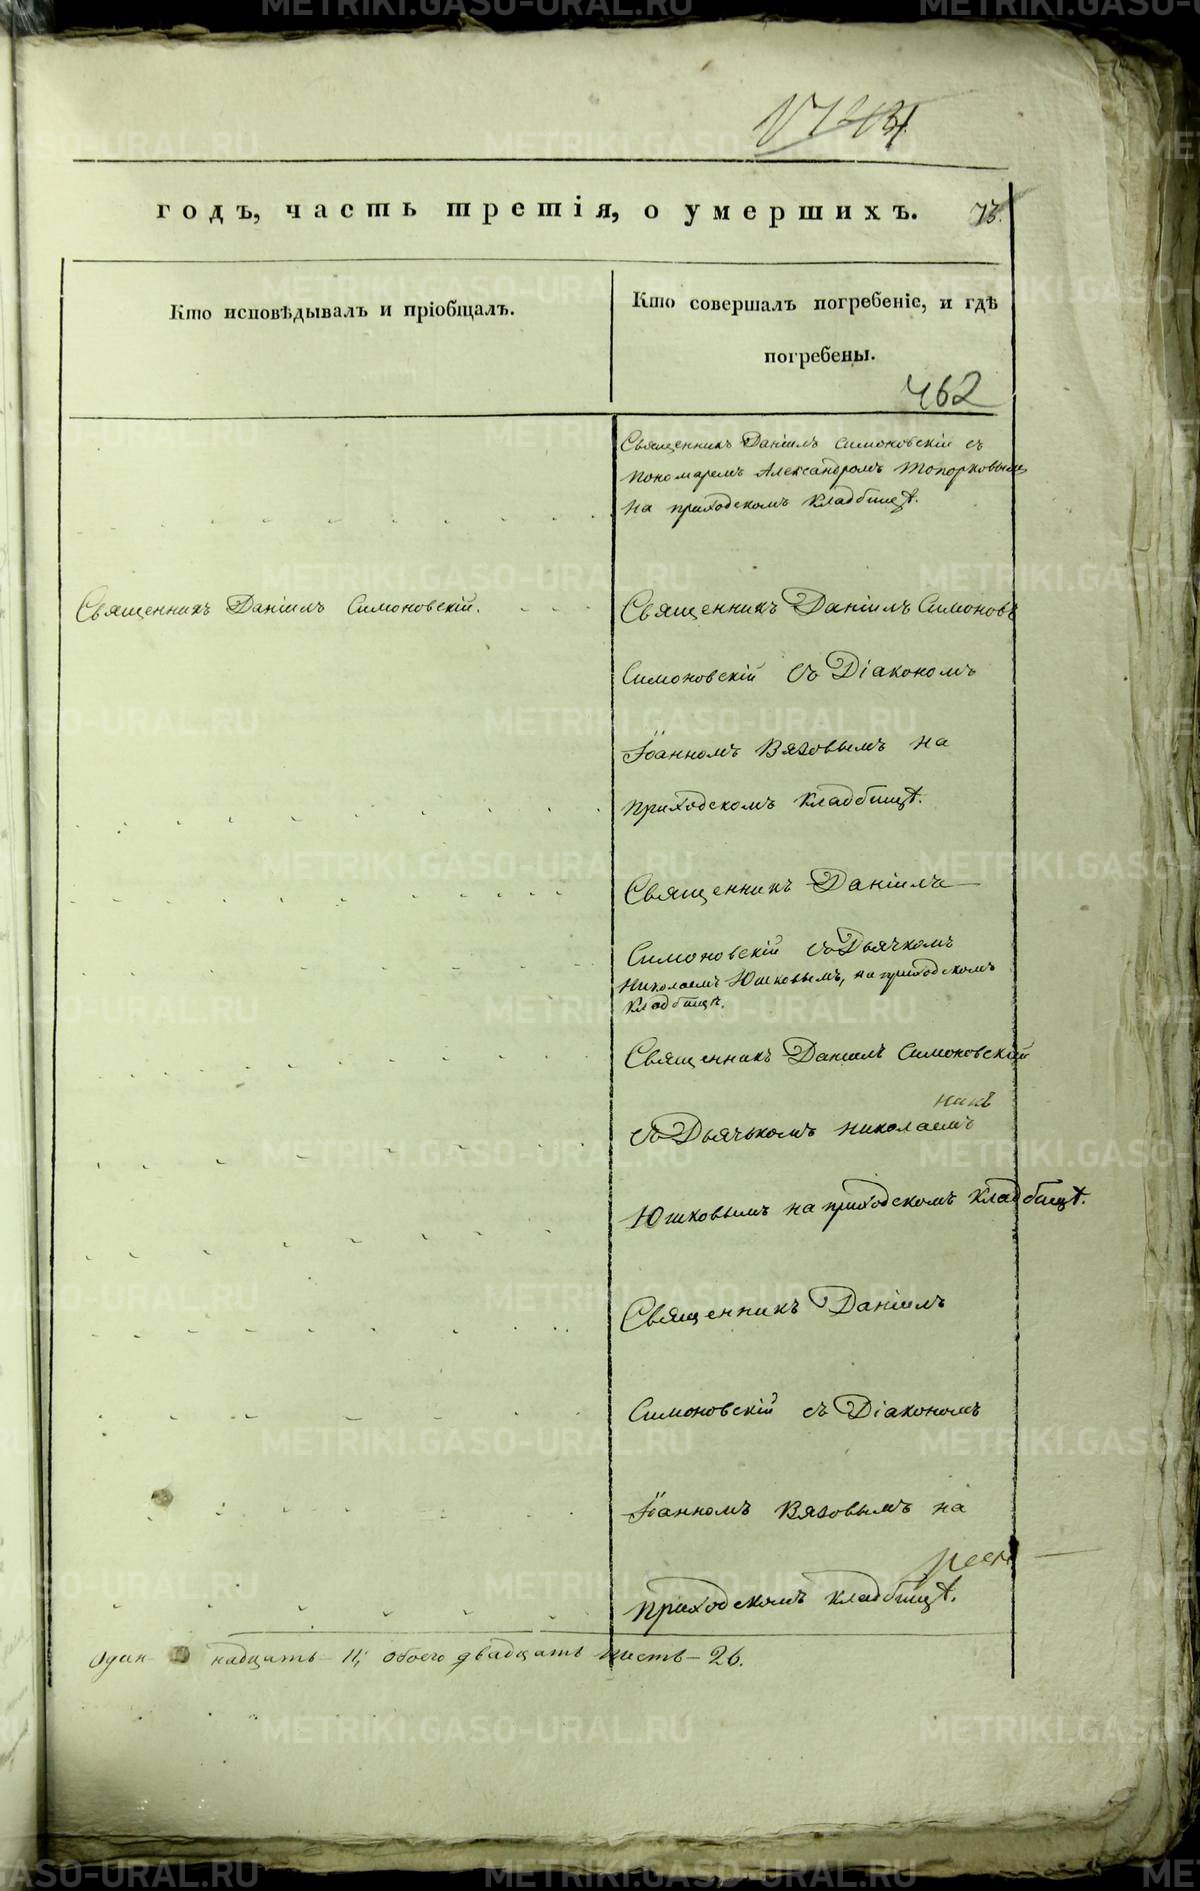 годъ, часть третія, о умершихъ.
73.
Кто исповѣдывалъ и пріобщалъ.
Кто совершалъ погребеніе, и гдѣ
погребены.
462
Священникъ Даніилъ Симоновскій съ
пономаремъ Александромъ Топорковымъ
на приходскомъ кладбищѣ.
Священникъ Даніилъ Симоновскій.
Священникъ Даніилъ Симоновъ
Симоновскій съ Діакономъ
Іоанномъ Вязовымъ на
приходскомъ кладбищѣ.
Священникъ Даніилъ
Симоновскій съ Дьячкомъ
Николаемъ Юшковымъ, на приходскомъ
кладбищѣ.
Священникъ Даніилъ Симоновскій
никъ
съ Дьячькомъ Николаемъ
Юшковымъ на приходскомъ кладбищѣ.
Священникъ Даніилъ
Симоновскій съ Діакономъ
Іоанномъ Вязовымъ на
приходскомъ кладбищѣ.
один- надцать - 11; обоего двадцать шесть - 26.
METRIKI.GASO-URAL.RU